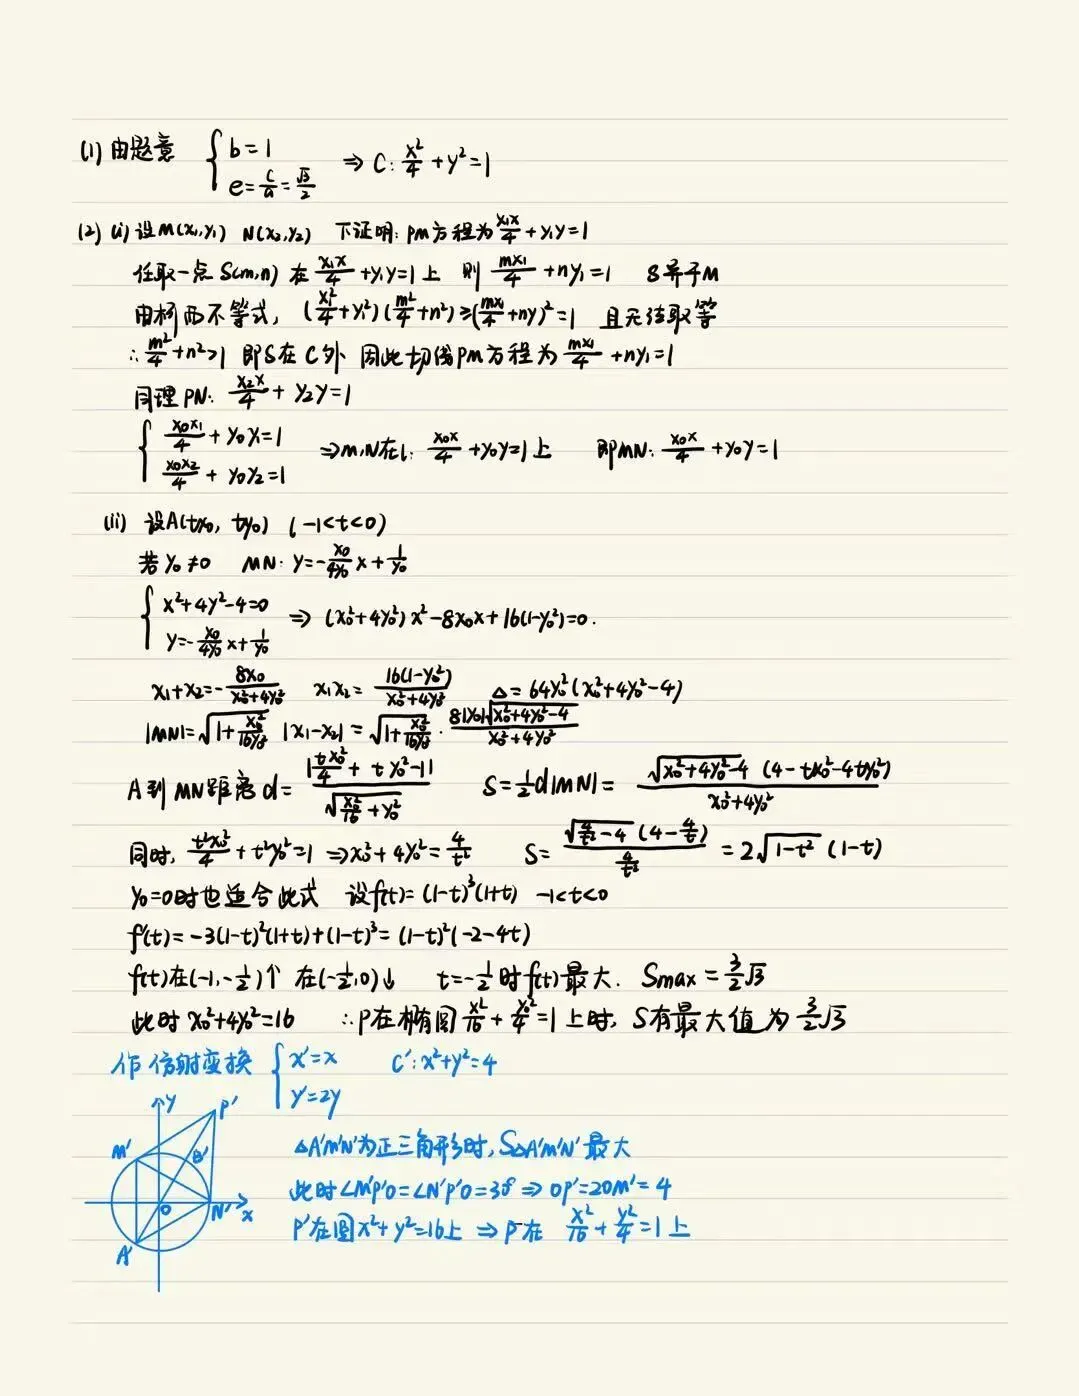 (1) 由题意 { b=1 e=c/a=√3/2 ⇒ C: x²/4+y²=1
(2) (i) 设M(x₁,y₁) N(x₂,y₂) 下证明: PM方程为 x₁x/4+y₁y=1
任取一点 S(m,n) 在 x₁x/4+y₁y=1上 则 mx₁/4+ny₁=1 S异于M
由柯西不等式, (x₁²/4+y₁²)(m²/4+n²)≥(mx₁/4+ny)²=1 且无法取等
∴m²/4+n²>1 即S在C外 因此切线PM方程为 mx₁/4+ny₁=1
同理PN: x₂x/4+y₂y=1
{ x₀x₁/4+y₀y₁=1 x₀x₂/4+y₀y₂=1 ⇒M,N在l: x₀x/4+y₀y=1上 即MN: x₀x/4+y₀y=1
(ii) 设A(tx₀, ty₀) (-1<t<0)
若y₀≠0 MN: y=-x₀/4y₀ x+1/y₀
{ x²+4y²-4=0 y=-x₀/4y₀ x+1/y₀ ⇒ (x₀²+4y₀²)x²-8x₀x+16(1-y₀²)=0.
x₁+x₂=-8x₀/(x₀²+4y₀²) x₁x₂=16(1-y₀²)/(x₀²+4y₀²) Δ=64y₀²(x₀²+4y₀²-4)
|MN|=√(1+x₀²/16y₀²) |x₁-x₂|=√(1+x₀²/16y₀²)·8|y₀|√(x₀²+4y₀²-4)/(x₀²+4y₀²)
A到MN距离d=|tx₀²/4+ty₀²-1|/√(x₀²/16+y₀²) S=½d|MN|=√(x₀²+4y₀²-4)(4-tx₀²-4ty₀²)/(x₀²+4y₀²)
同时, t²x₀²/4+t²y₀²=1 ⇒x₀²+4y₀²=4/t² S=√(4/t²-4)(4-4/t)/(4/t²)=2√(1-t²)(1-t)
y₀=0时也适合此式 设f(t)=(1-t)³(1+t) -1<t<0
f'(t)=-3(1-t)²(1+t)+(1-t)³=(1-t)²(-2-4t)
f(t)在(-1,-½)↑ 在(-½,0)↓ t=-½时f(t)最大. Smax=3/2√3
此时x₀²+4y₀²=16 ∴P在椭圆x₀²/16+y₀²/4=1上时, S有最大值为3/2√3
作仿射变换 { x'=x y'=2y C': x²+y²=4
y P' M' B' O N' x A'
△A'M'N'为正三角形时, S△A'M'N'最大
此时∠M'P'O=∠N'P'O=30° ⇒ OP'=2OM'=4
P'在圆x²+y²=16上 ⇒ P在 x²/16+y²/4=1上